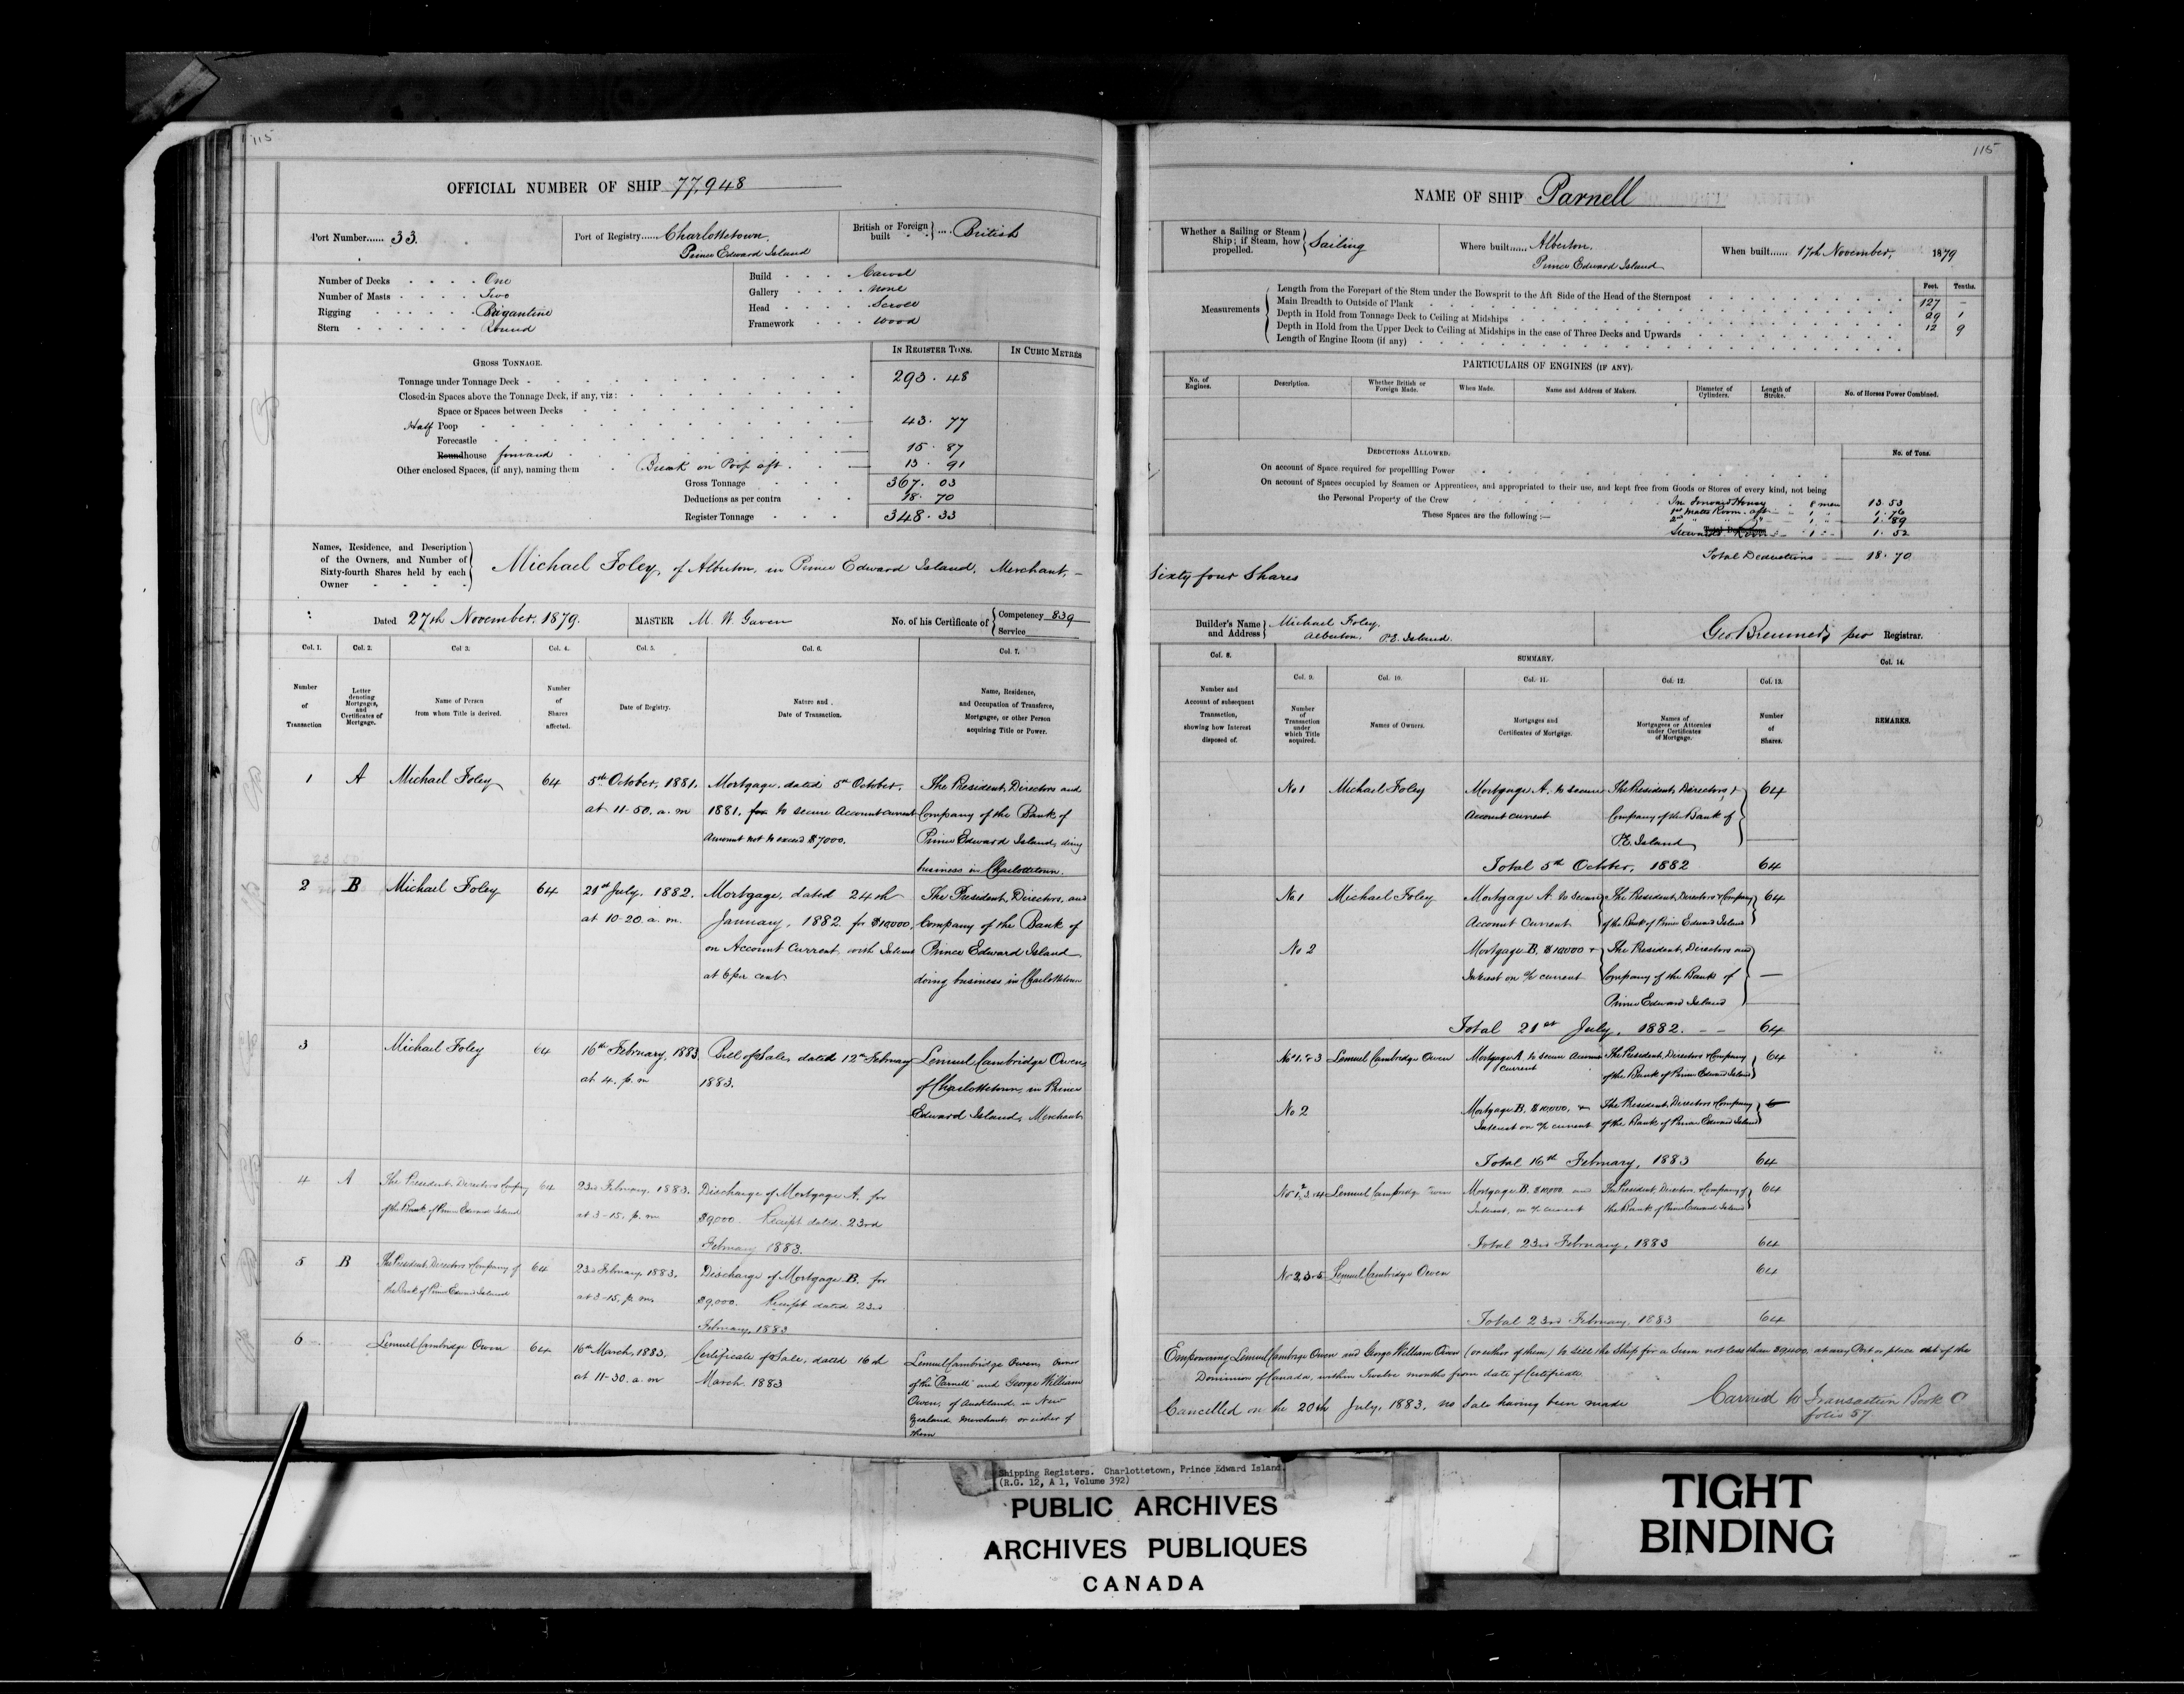 115
OFFICIAL NUMBER OF SHIP 77,948
Port Number...... 33.
Port of Registry...... Charlottetown,
Prince Edward Island
British or Foreign built } .... British
Number of Decks One
Number of Masts Two
Rigging Brigantine
Stern Round
Build Carvel
Gallery None
Head Scroll
Framework Wood
GROSS TONNAGE.
IN REGISTER TONS.
IN CUBIC METRES
Tonnage under Tonnage Deck 293.48
Closed-in Spaces above the Tonnage Deck, if any, viz:
Space or Spaces between Decks
Half Poop 43.77
Forecastle
Roundhouse forward 15.87
Other enclosed Spaces, (if any), naming them Break on Poop aft 13.91
Gross Tonnage 367.03
Deductions as per contra 18.70
Register Tonnage 348.33
Names, Residence, and Description
of the Owners, and Number of
Sixty-fourth Shares held by each
Owner
Michael Foley, of Alberton, in Prince Edward Island, Merchant, –
Dated 27th November, 1879.
MASTER M. W. Gaven
No. of his Certificate of { Competency 839
Service
Col. 1. Col. 2. Col 3. Col. 4. Col. 5. Col. 6. Col. 7.
Number of Transaction
Letter denoting Mortgages, and Certificates of Mortgage.
Name of Person from whom Title is derived.
Number of Shares affected.
Date of Registry.
Nature and Date of Transaction.
Name, Residence, and Occupation of Transferee, Mortgagee, or other Person acquiring Title or Power.
1 A Michael Foley 64 5th October, 1881. Mortgage, dated 5th October, The President, Directors and
at 11-50. a. m 1881. for to secure Account current Company of the Bank of
Amount not to exceed $7000. Prince Edward Island, doing
business in Charlottetown.
2 B Michael Foley 64 21st July, 1882. Mortgage, dated 24th The President, Directors, and
at 10-20. a. m. January, 1882. for $10,000, Company of the Bank of
on Account Current, with Interest Prince Edward Island
at 6 per cent. doing business in Charlottetown
3 Michael Foley 64 16th February, 1883 Bill of Sale, dated 12th February Lemuel Cambridge Owen,
at 4. p. m 1883. of Charlottetown, in Prince
Edward Island, Merchant
4 A The President, Directors & Company 64 23rd February, 1883. Discharge of Mortgage A. for
of the Bank of Prince Edward Island at 3-15. p. m $9,000. Receipt dated 23rd
February 1883.
5 B The President, Directors & Company of 64 23rd February, 1883. Discharge of Mortgage B. for
the Bank of Prince Edward Island at 3-15. p. m. $9,000. Receipt dated 23rd
February, 1883
6 Lemuel Cambridge Owen 64 16th March, 1883. Certificate of Sale, dated 16th Lemuel Cambridge Owen, Owner
at 11-30. a. m March. 1883 of the "Parnell" and George William
Owen, of Auckland in New
Zealand, Merchant, or either of
them
115
NAME OF SHIP Parnell
Whether a Sailing or Steam
Ship; if Steam, how
propelled. } Sailing
Where built...... Alberton,
Prince Edward Island
When built...... 17th November, 1879
Measurements
Feet. Tenths.
Length from the Forepart of the Stem under the Bowsprit to the Aft Side of the Head of the Sternpost 127 –
Main Breadth to Outside of Plank 29 1
Depth in Hold from Tonnage Deck to Ceiling at Midships 12 9
Depth in Hold from the Upper Deck to Ceiling at Midships in the case of Three Decks and Upwards
Length of Engine Room (if any)
PARTICULARS OF ENGINES (IF ANY).
No. of Engines.
Description.
Whether British or Foreign Made.
When Made.
Name and Address of Makers.
Diameter of Cylinders.
Length of Stroke.
No. of Horses Power Combined.
DEDUCTIONS ALLOWED.
No. of Tons.
On account of Space required for propelling Power
On account of Spaces occupied by Seamen or Apprentices, and appropriated to their use, and kept free from Goods or Stores of every kind, not being
the Personal Property of the Crew In forward House 8 men 13.53
These Spaces are the following:— 1st Mates Room aft 1 " 1.76
2nd " " " 1 " 1.89
Stewards Room 1 " 1.52
Total Deductions 18.70
Sixty four Shares
Builder's Name and Address } Michael Foley.
Alberton, P.E. Island.
Registrar.
Col. 8. SUMMARY. Col. 14.
Col. 9. Col. 10. Col. 11. Col. 12. Col. 13.
Number and Account of subsequent Transaction, showing how Interest disposed of.
Number of Transaction under which Title acquired.
Names of Owners.
Mortgages and Certificates of Mortgage.
Names of Mortgagees or Attornies under Certificates of Mortgage.
Number of Shares.
REMARKS.
No 1 Michael Foley Mortgage A. to secure The President, Directors, & 64
Account current Company of the Bank of
P.E. Island
Total 5th October, 1882 64
No. 1 Michael Foley Mortgage A to secure The President, Directors & Company 64
Account Current of the Bank of Prince Edward Island
No 2 Mortgage B, $10,000 & The President, Directors and
Interest on a/c current Company of the Bank of —
Prince Edward Island
Total 21st July, 1882. – – 64
No 1. & 3 Lemuel Cambridge Owen Mortgage A to secure Account The President, Directors & Company 64
current of the Bank of Prince Edward Island
No 2 Mortgage B. $10,000, & The President, Directors & Company
Interest on a/c current of the Bank of Prince Edward Island
Total 16th February, 1883 64
No 1, 2, 3 & 4 Lemuel Cambridge Owen Mortgage B. $10,000 and The President, Directors, & Company of 64
Interest, on a/c current the Bank of Prince Edward Island
Total 23rd February, 1883 64
No 2, 3 & 5 Lemuel Cambridge Owen 64
Total 23rd February, 1883 64
Empowering Lemuel Cambridge Owen and George William Owen (or either of them) to sell the Ship for a Sum not less than at any Port or place out of the
Dominion of Canada, within Twelve months from date of Certificate.
Cancelled on the 20th July, 1883, no Sale having been made
Carried to Transaction Book C
folio 57
Shipping Registers. Charlottetown, Prince Edward Island.
(R.G. 12, A 1, Volume 392)
PUBLIC ARCHIVES
ARCHIVES PUBLIQUES
CANADA
TIGHT
BINDING